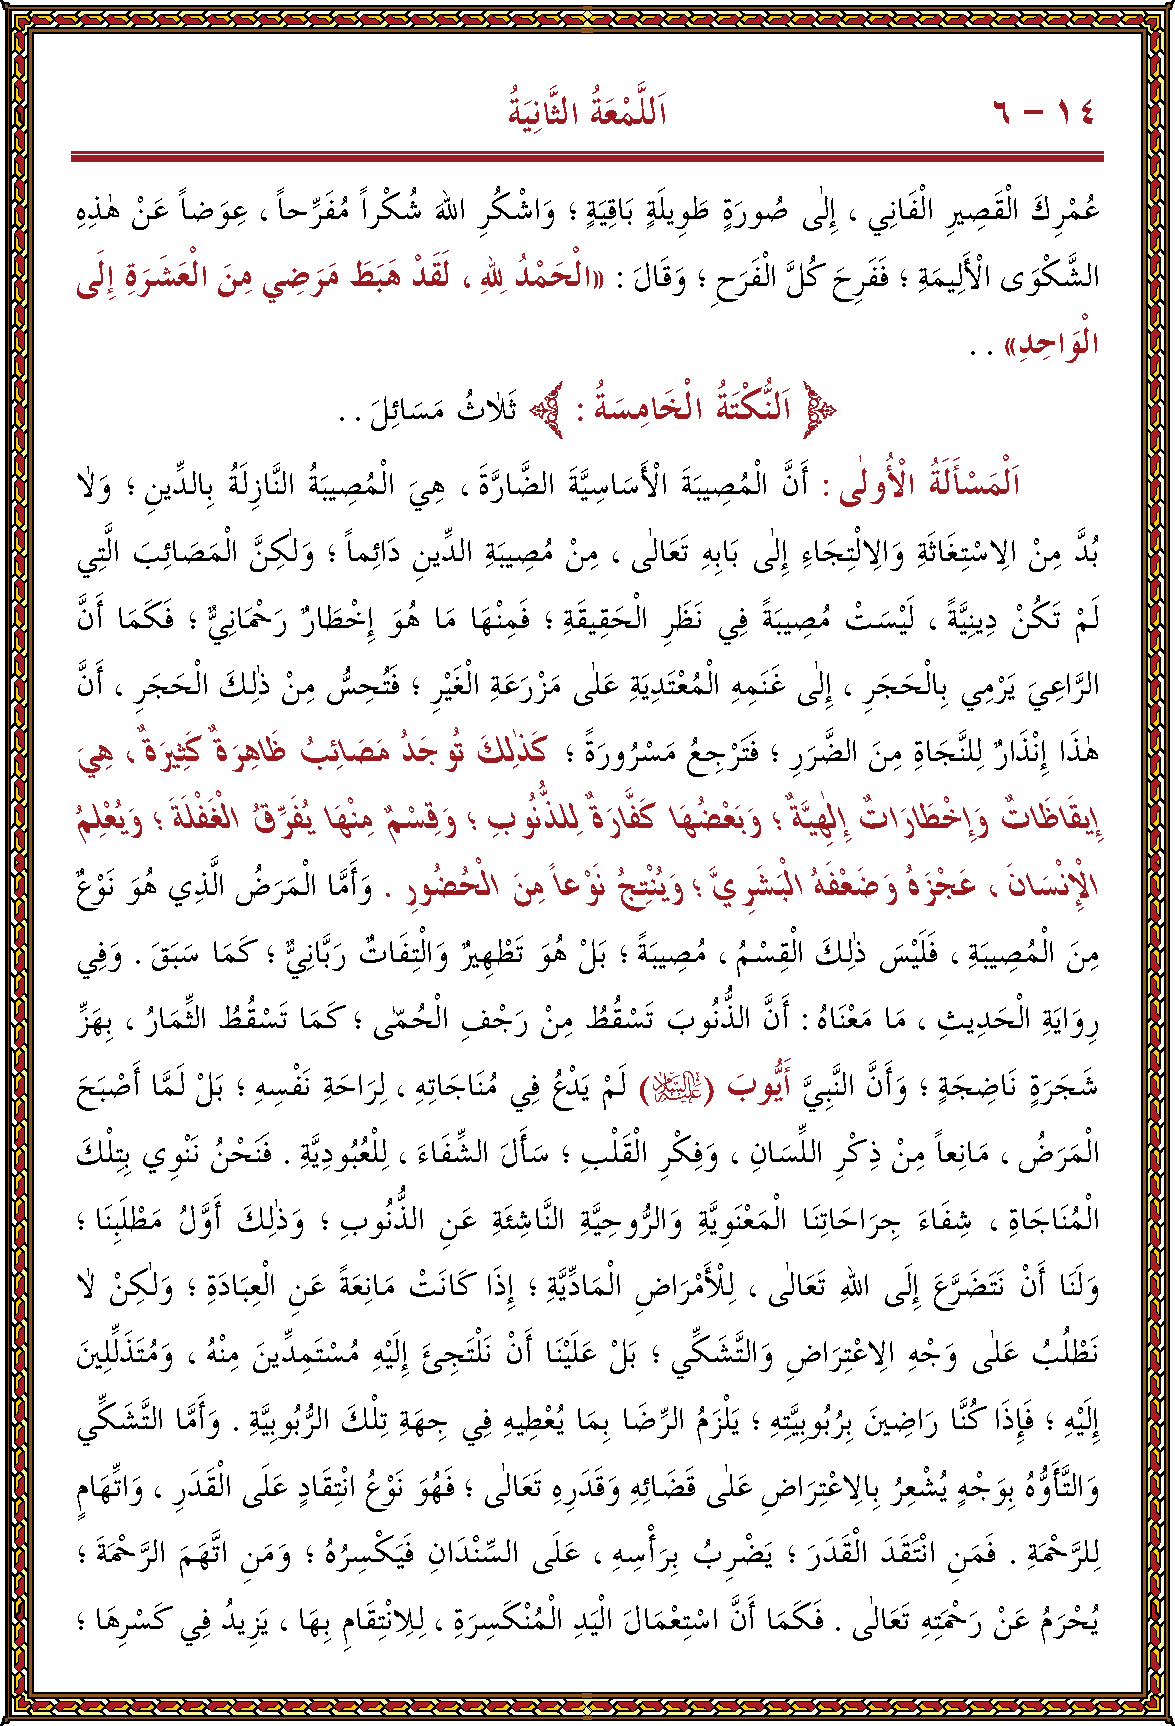 ١٤ – ٦ اَللَّمْعَةُ الثَّانِيَةُ
عُمْرِكَ الْقَصِيرِ الْفَانِي ، إِلٰى صُورَةٍ طَوِيلَةٍ بَاقِيَةٍ ؛ وَاشْكُرِ اللهَ شُكْراً مُفَرِّحاً ، عِوَضاً عَنْ هٰذِهِ
الشَّكْوَى الْأَلِيمَةِ ؛ فَفَرِحَ كُلَّ الْفَرَحِ ؛ وَقَالَ : «الْحَمْدُ لِلهِ ، لَقَدْ هَبَطَ مَرَضِي مِنَ الْعَشَرَةِ إِلَى
الْوَاحِدِ» . .
﴿ اَلنُّكْتَةُ الْخَامِسَةُ : ﴾ ثَلَاثُ مَسَائِلَ . .
اَلْمَسْأَلَةُ الْأُولٰى : أَنَّ الْمُصِيبَةَ الْأَسَاسِيَّةَ الضَّارَّةَ ، هِيَ الْمُصِيبَةُ النَّازِلَةُ بِالدِّينِ ؛ وَلَا
بُدَّ مِنْ الِاسْتِغَاثَةِ وَالِالْتِجَاءِ إِلٰى بَابِهِ تَعَالٰى ، مِنْ مُصِيبَةِ الدِّينِ دَائِماً ؛ وَلٰكِنَّ الْمَصَائِبَ الَّتِي
لَمْ تَكُنْ دِينِيَّةً ، لَيْسَتْ مُصِيبَةً فِي نَظَرِ الْحَقِيقَةِ ؛ فَمِنْهَا مَا هُوَ إِخْطَارٌ رَحْمَانِيٌّ ؛ فَكَمَا أَنَّ
الرَّاعِيَ يَرْمِي بِالْحَجَرِ ، إِلٰى غَنَمِهِ الْمُتَعْدِيَةِ عَلٰى مَزْرَعَةِ الْغَيْرِ ؛ فَتُحِسُّ مِنْ ذٰلِكَ الْحَجَرِ ، أَنَّ
هٰذَا إِنْذَارٌ لِلنَّجَاةِ مِنَ الضَّرَرِ ؛ فَتَرْجِعُ مَسْرُورَةً ؛ كَذٰلِكَ تُوجَدُ مَصَائِبُ ظَاهِرَةٌ كَثِيرَةٌ ، هِيَ
إِيقَاظَاتٌ وَإِخْطَارَاتٌ إِلٰهِيَّةٌ ؛ وَبَعْضُهَا كَفَّارَةٌ لِلذُّنُوبِ ؛ وَقِسْمٌ مِنْهَا يُفَرِّقُ الْغَفْلَةَ ؛ وَيُعْلِمُ
الْإِنْسَانَ ، عَجْزَهُ وَضَعْفَهُ الْبَشَرِيَّ ؛ وَيُنْتِجُ نَوْعاً مِنَ الْحُضُورِ . وَأَمَّا الْمَرَضُ الَّذِي هُوَ نَوْعٌ
مِنَ الْمُصِيبَةِ ، فَلَيْسَ ذٰلِكَ الْقِسْمُ ، مُصِيبَةً ؛ بَلْ هُوَ تَطْهِيرٌ وَالْتِفَاتٌ رَبَّانِيٌّ ؛ كَمَا سَبَقَ . وَفِي
رِوَايَةِ الْحَدِيثِ ، مَا مَعْنَاهُ : أَنَّ الذُّنُوبَ تَسْقُطُ مِنْ رَجْفِ الْحُمّٰى ؛ كَمَا تَسْقُطُ الثِّمَارُ ، بِهَزِّ
شَجَرَةٍ نَاضِجَةٍ ؛ وَأَنَّ النَّبِيَّ أَيُّوبَ (عَلَيْهِ السَّلَامُ) لَمْ يَدْعُ فِي مُنَاجَاتِهِ ، لِرَاحَةِ نَفْسِهِ ؛ بَلْ لَمَّا أَصْبَحَ
الْمَرَضُ ، مَانِعاً مِنْ ذِكْرِ اللِّسَانِ ، وَفِكْرِ الْقَلْبِ ؛ سَأَلَ الشِّفَاءَ ، لِلْعُبُودِيَّةِ . فَنَحْنُ نَنْوِي بِتِلْكَ
الْمُنَاجَاةِ ، شِفَاءَ جِرَاحَاتِنَا الْمَعْنَوِيَّةِ وَالرُّوحِيَّةِ النَّاشِئَةِ عَنِ الذُّنُوبِ ؛ وَذٰلِكَ أَوَّلُ مَطْلَبِنَا ؛
وَلَنَا أَنْ نَتَضَرَّعَ إِلَى اللهِ تَعَالٰى ، لِلْأَمْرَاضِ الْمَادِّيَّةِ ؛ إِذَا كَانَتْ مَانِعَةً عَنِ الْعِبَادَةِ ؛ وَلٰكِنْ لَا
نَطْلُبُ عَلٰى وَجْهِ الِاعْتِرَاضِ وَالتَّشَكِّي ؛ بَلْ عَلَيْنَا أَنْ نَلْتَجِئَ إِلَيْهِ مُسْتَمِدِّينَ مِنْهُ ، وَمُتَذَلِّلِينَ
إِلَيْهِ ؛ فَإِذَا كُنَّا رَاضِينَ بِرُبُوبِيَّتِهِ ؛ يَلْزَمُ الرِّضَا بِمَا يُعْطِيهِ فِي جِهَةِ تِلْكَ الرُّبُوبِيَّةِ . وَأَمَّا التَّشَكِّي
وَالتَّأَوُّهُ بِوَجْهٍ يُشْعِرُ بِالِاعْتِرَاضِ عَلٰى قَضَائِهِ وَقَدَرِهِ تَعَالٰى ؛ فَهُوَ نَوْعُ انْتِقَادٍ عَلَى الْقَدَرِ ، وَاتِّهَامٍ
لِلرَّحْمَةِ . فَمَنِ انْتَقَدَ الْقَدَرَ ؛ يَضْرِبُ بِرَأْسِهِ ، عَلَى السِّنْدَانِ فَيَكْسِرُهُ ؛ وَمَنِ اتَّهَمَ الرَّحْمَةَ ؛
يُحْرَمُ عَنْ رَحْمَتِهِ تَعَالٰى . فَكَمَا أَنَّ اسْتِعْمَالَ الْيَدِ الْمُنْكَسِرَةِ ، لِلِانْتِقَامِ بِهَا ، يَزِيدُ فِي كَسْرِهَا ؛